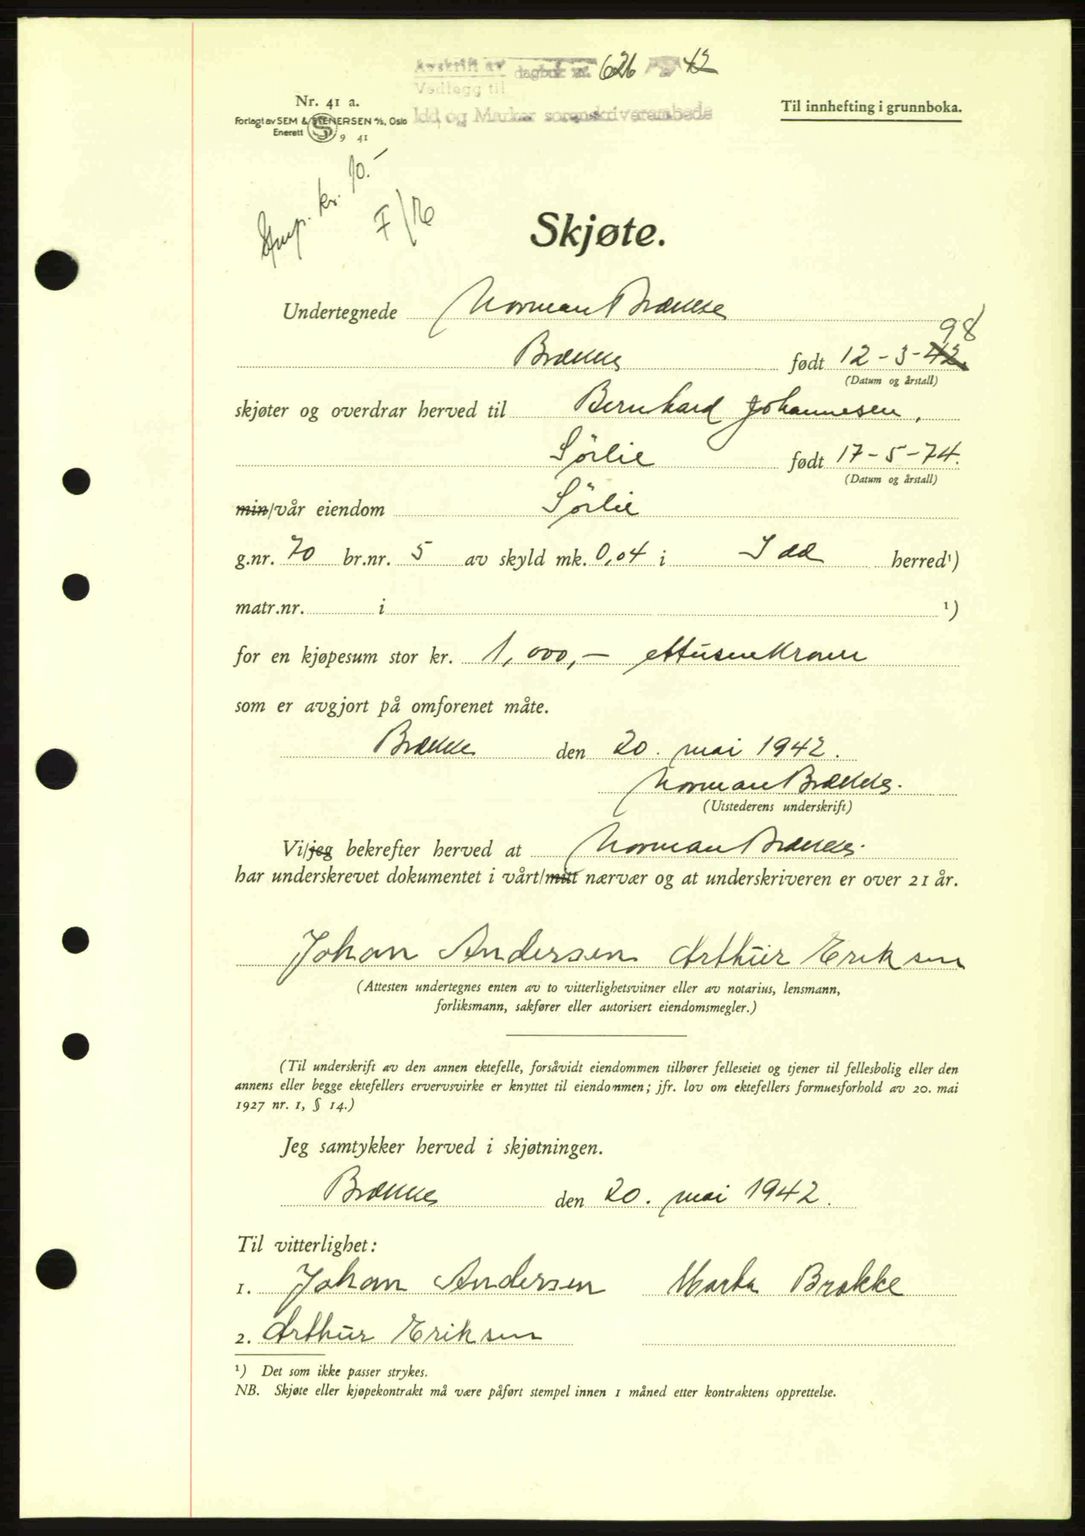 Avskrift av dagbok nr. 626 42
Vedlegg til
Idd og Marker sorenskriverembede
Nr. 41 a.
Forlagt av SEM & STENERSEN A/S, Oslo
Enerett S 9 41
Til innhefting i grunnboka.
Stmp. kr. 10.-
Skjøte.
Undertegnede Norman Brække
98
Brække født 12-3-42.
(Datum og årstall)
skjøter og overdrar herved til Bernhard Johannesen,
Sørlie født 17-5-74.
(Datum og årstall)
min/vår eiendom Sørlie
g.nr. 70 br.nr. 5 av skyld mk. 0,04 i Idd herred¹)
matr.nr. i ¹)
for en kjøpesum stor kr. 1,000,- ettusenkroner
som er avgjort på omforenet måte.
Brække den 20. mai 1942.
Norman Brække.
(Utstederens underskrift)
Vi/jeg bekrefter herved at Norman Brække.
har underskrevet dokumentet i vårt/mitt nærvær og at underskriveren er over 21 år.
Johan Andersen Arthur Eriksen
(Attesten undertegnes enten av to vitterlighetsvitner eller av notarius, lensmann,
forliksmann, sakfører eller autorisert eiendomsmegler.)
(Til underskrift av den annen ektefelle, forsåvidt eiendommen tilhører felleseiet og tjener til fellesbolig eller den
annens eller begge ektefellers ervervsvirke er knyttet til eiendommen; jfr. lov om ektefellers formuesforhold av 20. mai
1927 nr. 1, § 14.)
Jeg samtykker herved i skjøtningen.
Brække den 20. mai 1942.
Til vitterlighet:
1. Johan Andersen Marta Brække
2. Arthur Eriksen
¹) Det som ikke passer strykes.
NB. Skjøte eller kjøpekontrakt må være påført stempel innen 1 måned etter kontraktens opprettelse.